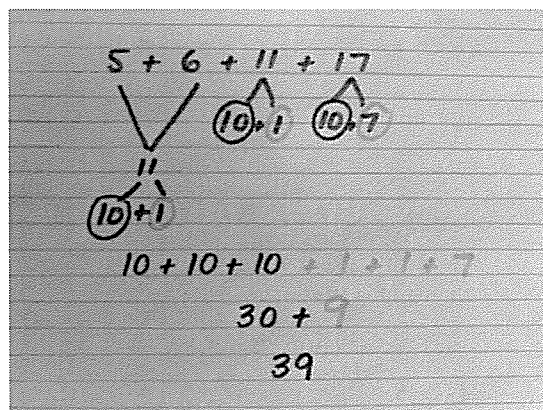 5 + 6 + 11 + 17
10 + 1 10 + 7
11
10 + 1
10 + 10 + 10 + 1 + 1 + 7
30 + 9
39